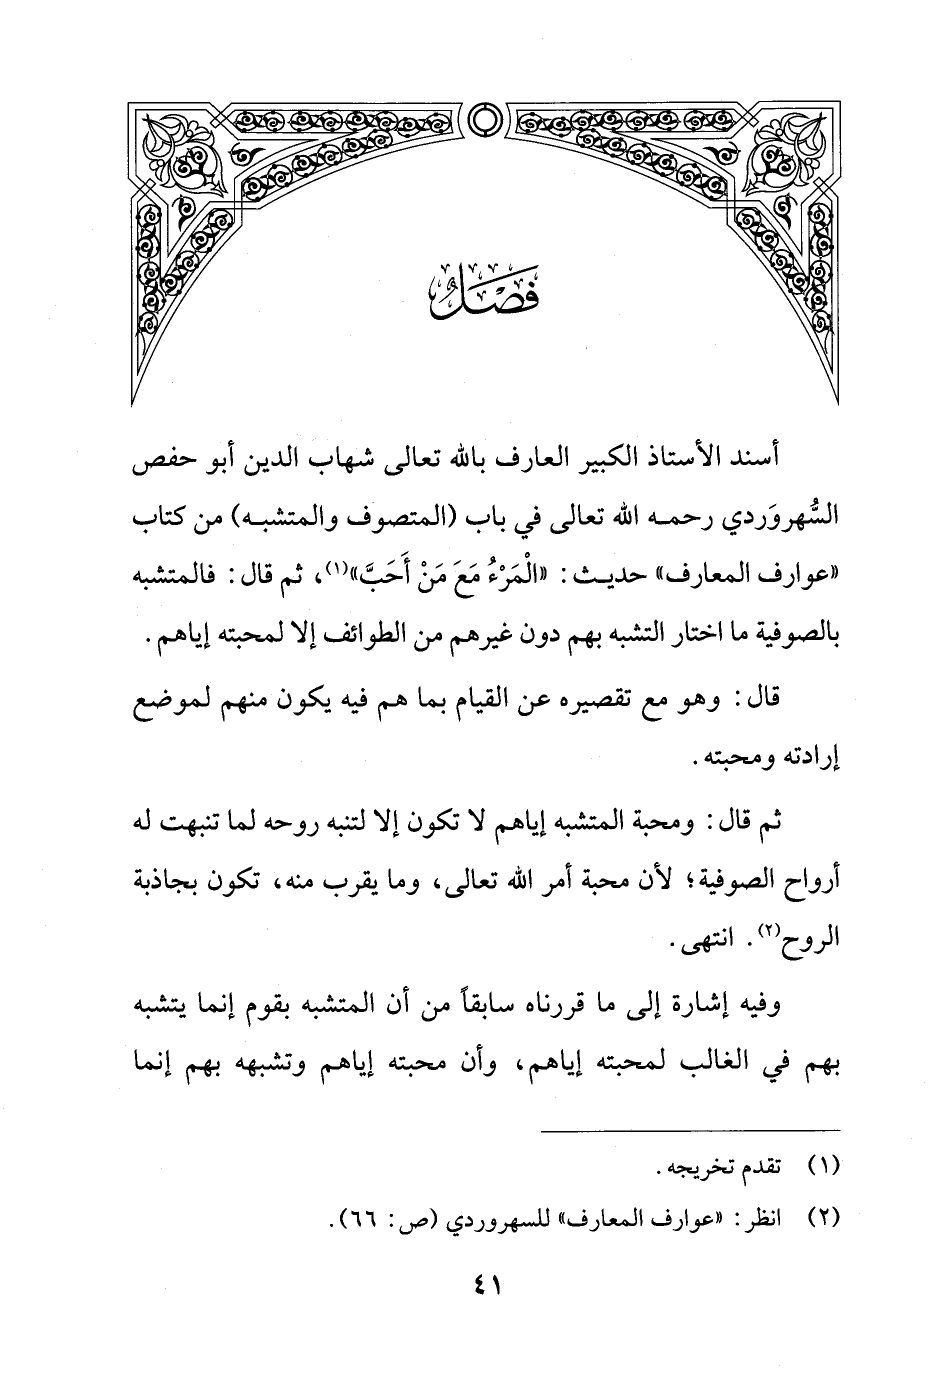 فَصْلٌ
أسند الأستاذ الكبير العارف بالله تعالى شهاب الدين أبو حفص
السُّهروَردي رحمه الله تعالى في باب (المتصوف والمتشبه) من كتاب
«عوارف المعارف» حديث: «الْمَرْءُ مَعَ مَنْ أَحَبَّ»(١)، ثم قال: فالمتشبه
بالصوفية ما اختار التشبه بهم دون غيرهم من الطوائف إلا لمحبته إياهم.
قال: وهو مع تقصيره عن القيام بما هم فيه يكون منهم لموضع
إرادته ومحبته.
ثم قال: ومحبة المتشبه إياهم لا تكون إلا لتنبه روحه لما تنبهت له
أرواح الصوفية؛ لأن محبة أمر الله تعالى، وما يقرب منه، تكون بجاذبة
الروح(٢). انتهى.
وفيه إشارة إلى ما قررناه سابقاً من أن المتشبه بقوم إنما يتشبه
بهم في الغالب لمحبته إياهم، وأن محبته إياهم وتشبهه بهم إنما
(١) تقدم تخريجه.
(٢) انظر: «عوارف المعارف» للسهروردي (ص: ٦٦).
٤١